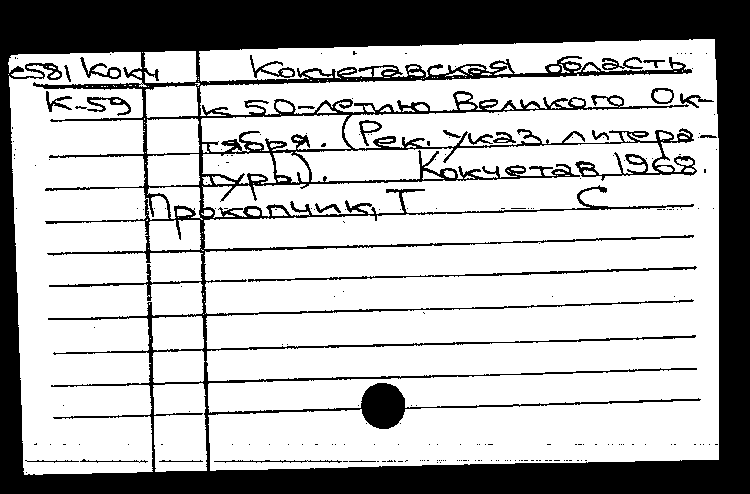 с581 Кокч Кокчетавская область
К-59 к 50-летию Великого Ок-
тября. (Рек. указ. литера-
туры). Кокчетав, 1968.
Прокопчик, Т С